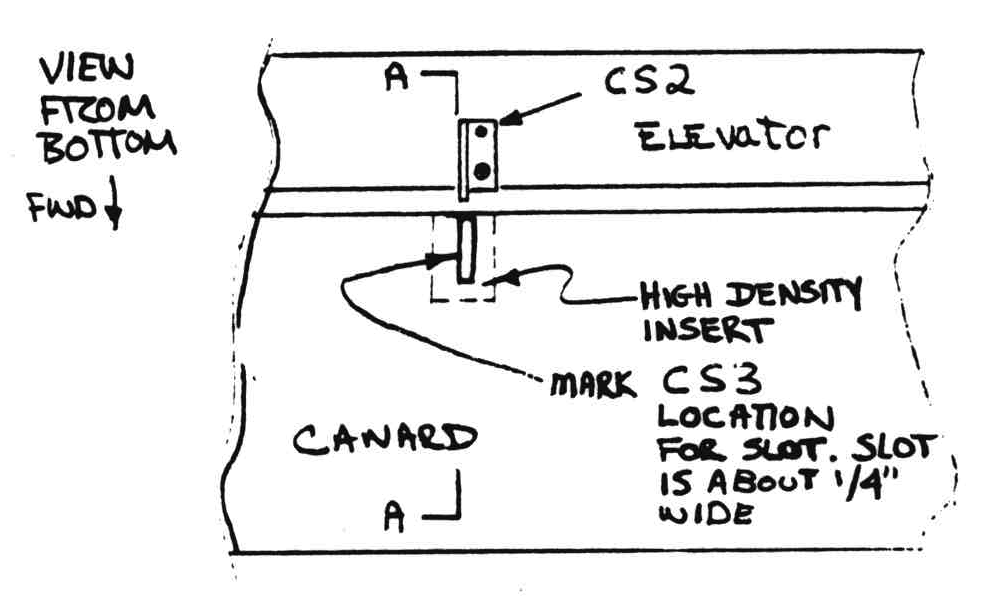 VIEW
FROM
BOTTOM
FWD
A
CS2
ELEvator
HIGH DENSITY
INSERT
MARK CS3
LOCATION
FOR SLOT. SLOT
IS ABOUT 1/4"
WIDE
CANARD
A